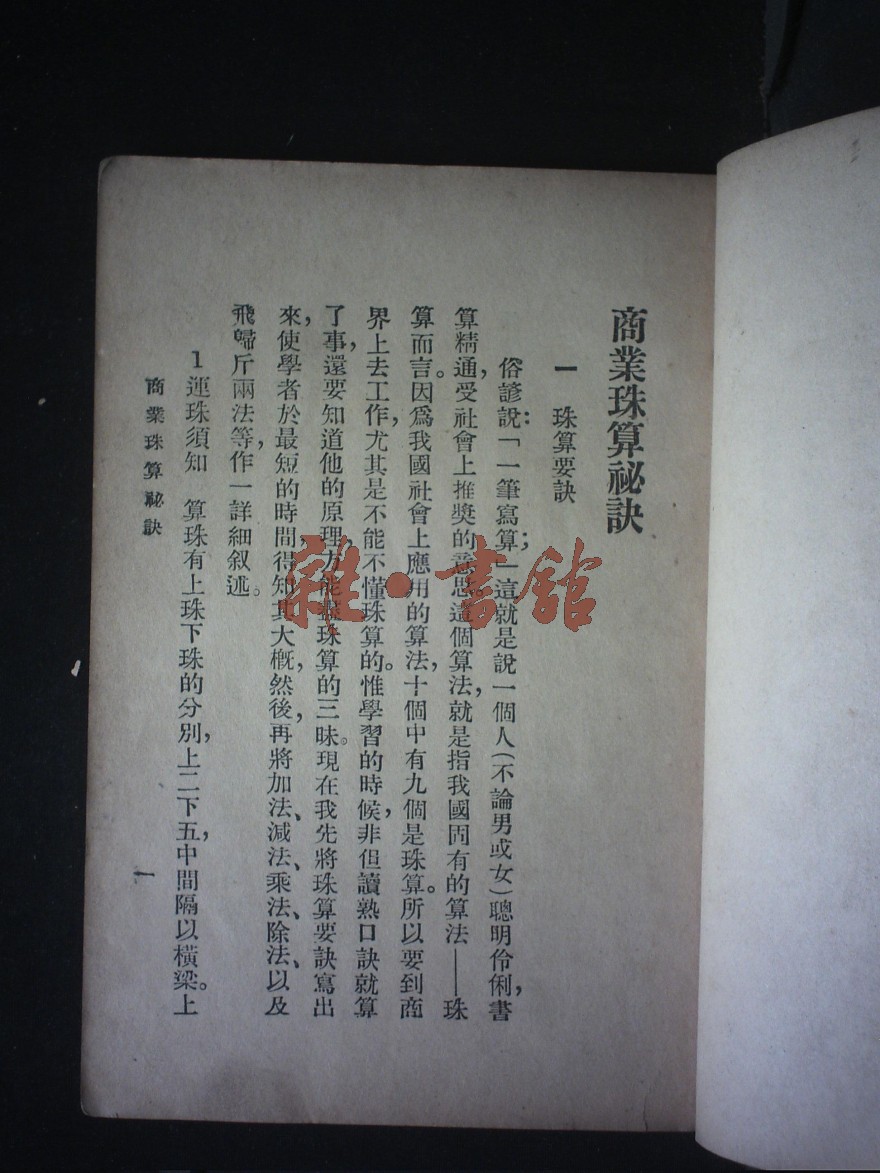 商業珠算祕訣
一　珠算要訣
俗諺說：「一筆寫算；」這就是說一個人（不論男或女）聰明伶俐，書
算精通，受社會上推奬的意思。這個算法，就是指我國固有的算法——珠
算而言。因爲我國社會上應用的算法，十個中有九個是珠算。所以要到商
界上去工作，尤其是不能不懂珠算的。惟學習的時候，非但讀熟口訣就算
了事，還要知道他的原理，方能珠算的三昧。現在我先將珠算要訣寫出
來，使學者於最短的時間，得知其大槪，然後，再將加法、減法、乘法、除法、以及
飛歸斤兩法等，作一詳細叙述。
1 運珠須知　算珠有上珠下珠的分別，上二下五，中間隔以橫梁。上
商業珠算祕訣
一
雜·書館